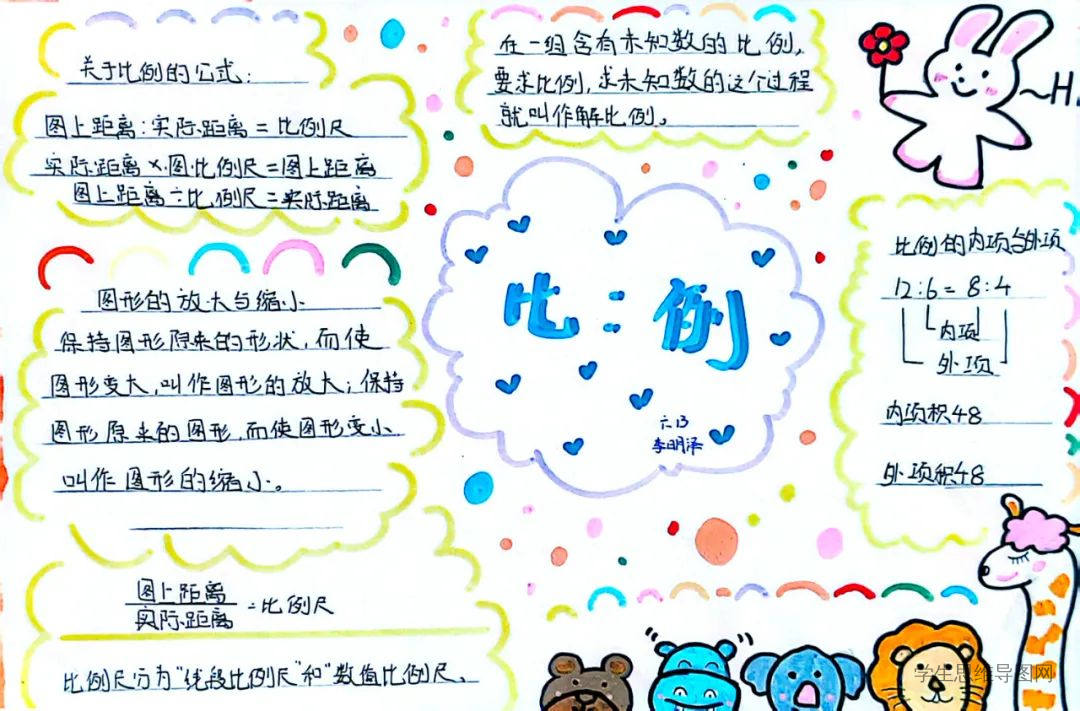 关于比例的公式:
图上距离:实际距离=比例尺
实际距离×图·比例尺=图上距离
图上距离÷比例尺=实际距离
图形的放大与缩小
保持图形原来的形状,而使
图形变大,叫作图形的放大;保持
图形原来的图形,而使图形变小
叫作图形的缩小。
图上距离
实际距离
=比例尺
比例尺分为"线段比例尺"和"数值比例尺。
在一组含有未知数的比例,
要求比例,求未知数的这个过程
就叫作解比例。
比:例
六13
李明泽
~Hi
比例的内项与外项
12:6=8:4
内项
外项
内项积48
外项积48
学生思维导图网